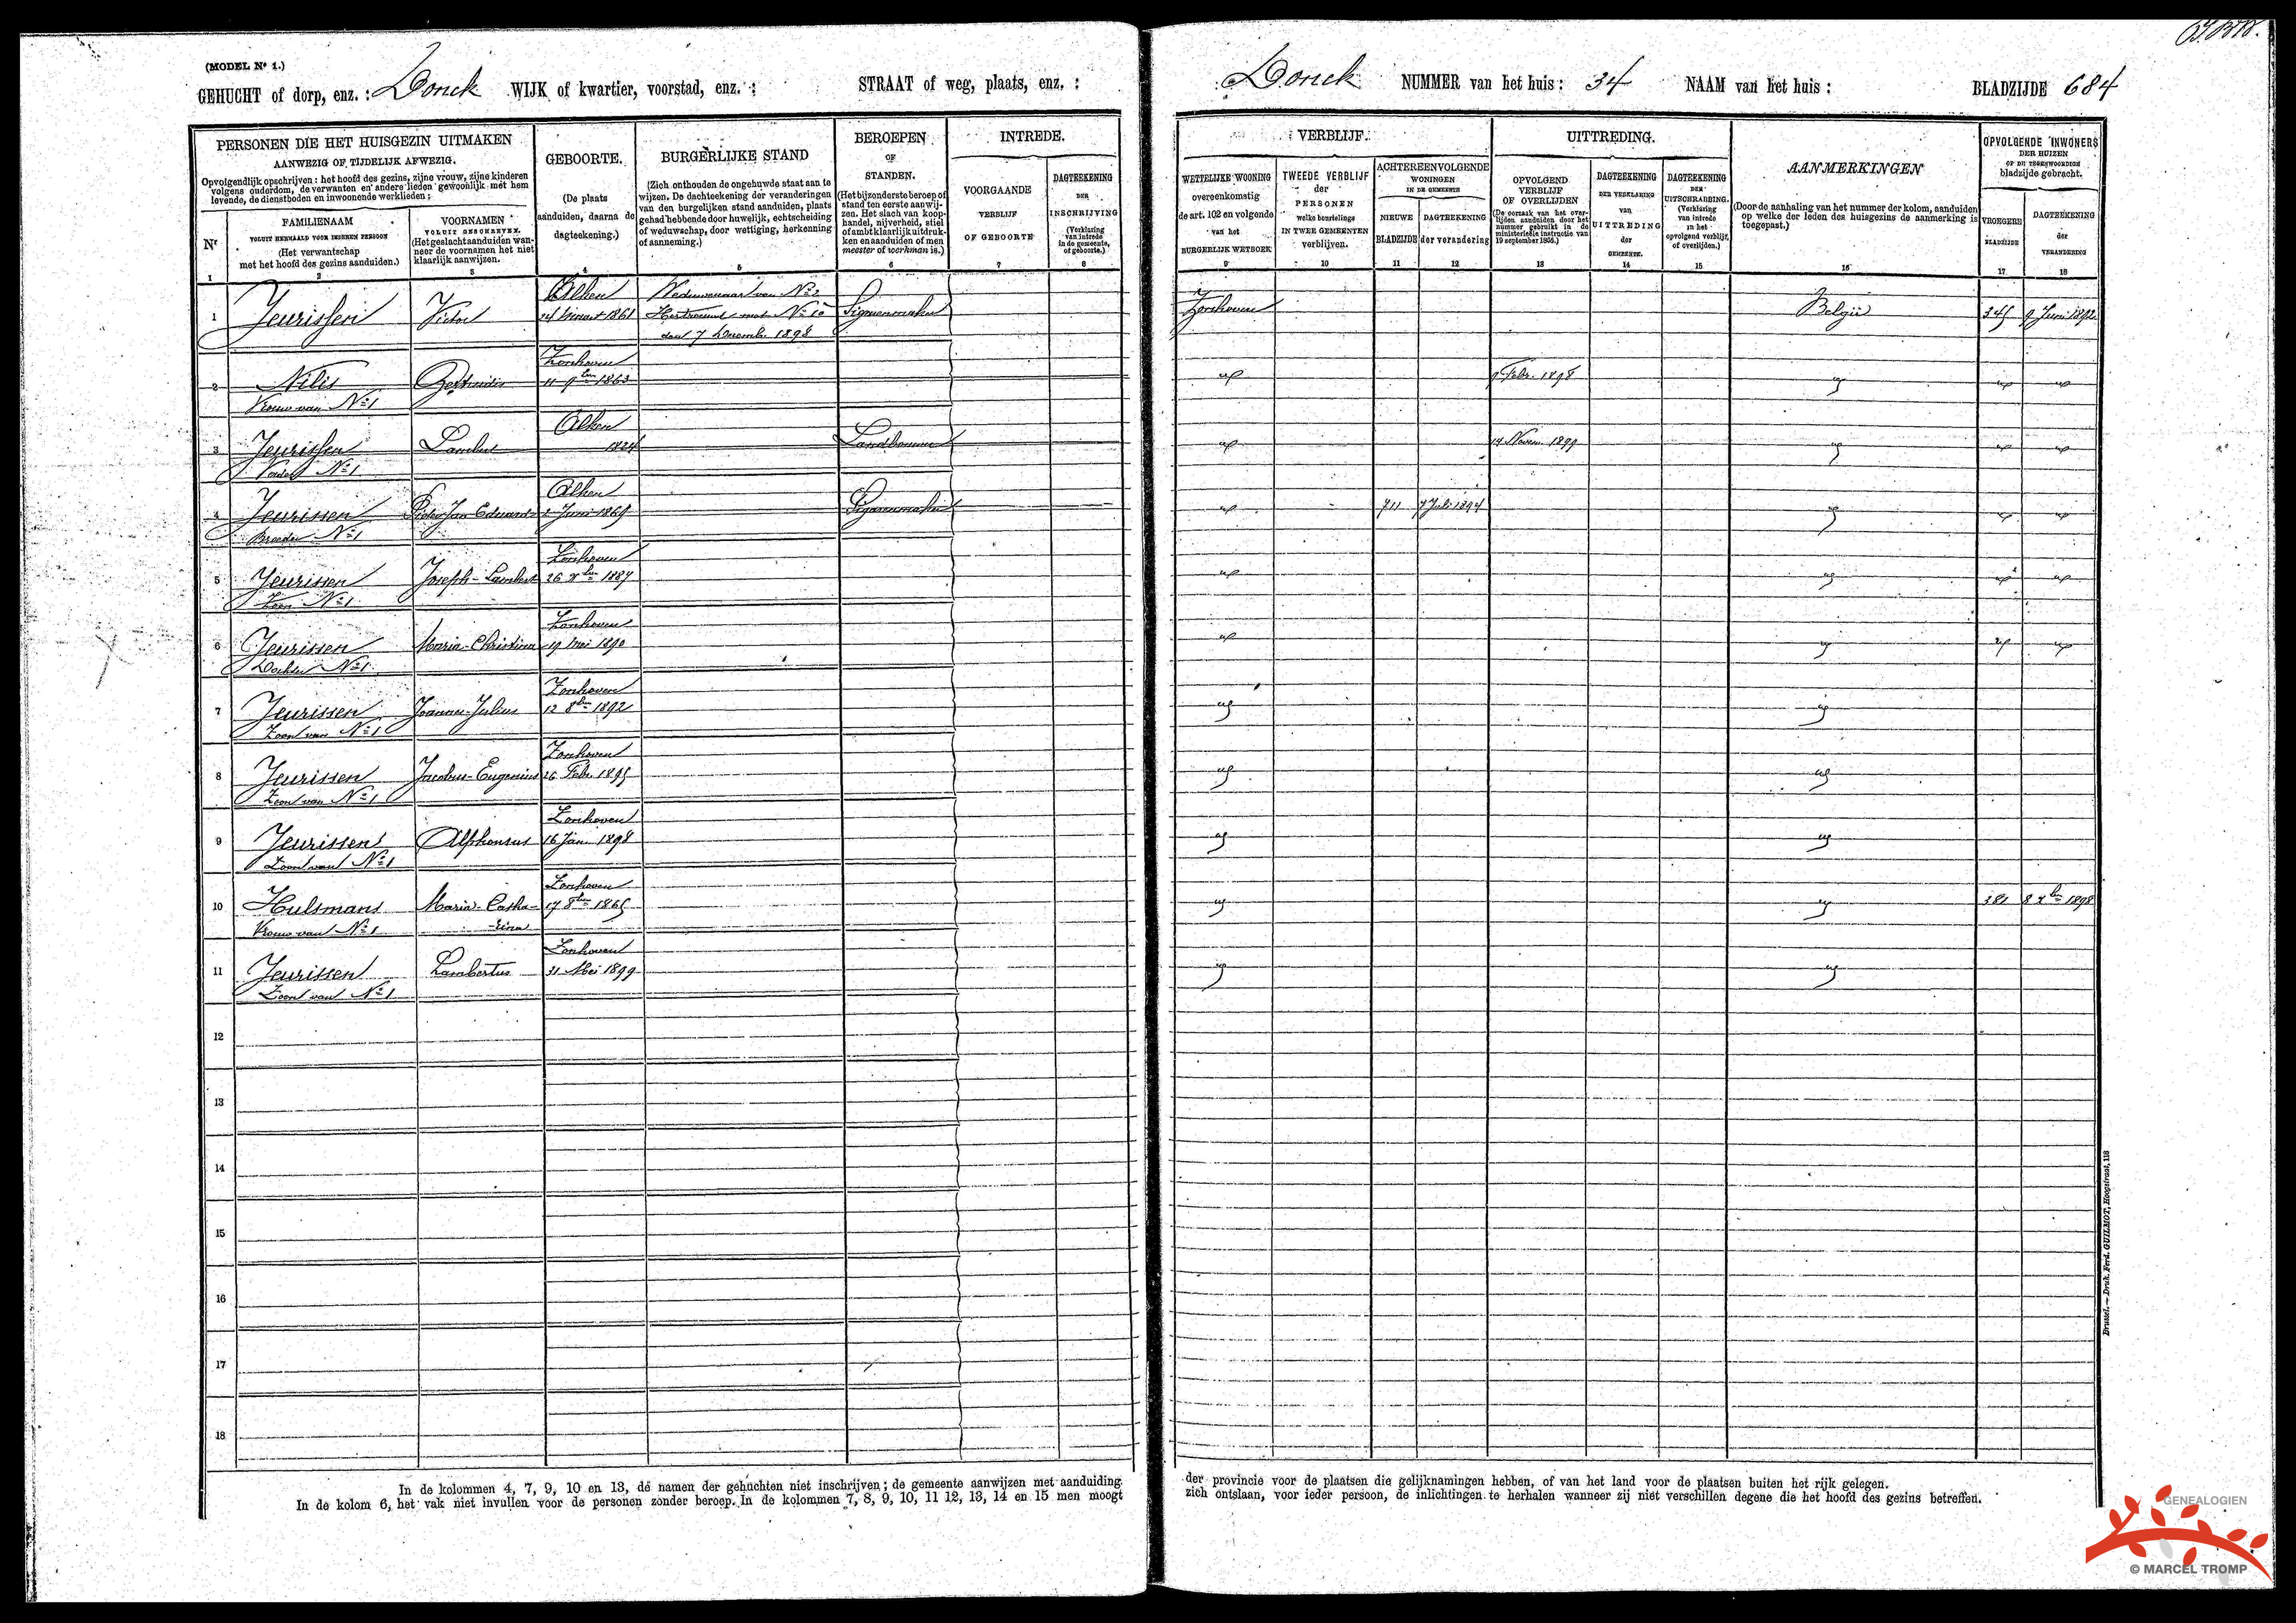 (MODEL Nr 1.)
GEHUCHT of dorp, enz. : Donck WIJK of kwartier, voorstad, enz. : STRAAT of weg, plaats, enz. :
PERSONEN DIE HET HUISGEZIN UITMAKEN
AANWEZIG OF TIJDELIJK AFWEZIG.
Opvolgendlijk opschrijven : het hoofd des gezins, zijne vrouw, zijne kinderen
volgens ouderdom, de verwanten en andere lieden gewoonlijk met hem
levende, de dienstboden en inwoonende werklieden ;
Nr
FAMILIENAAM
VOLUIT HERHAALD VOOR IEDEREN PERSOON
(Het verwantschap
met het hoofd des gezins aanduiden.)
VOORNAMEN
VOLUIT GESCHREVEN.
(Het geslacht aanduiden wan-
neer de voornamen het niet
klaarlijk aanwijzen.
GEBOORTE.
(De plaats
aanduiden, daarna de
dagteekening.)
BURGERLIJKE STAND
(Zich onthouden de ongehuwde staat aan te
wijzen. De dachteekening der veranderingen
van den burgelijken stand aanduiden, plaats
gehad hebbende door huwelijk, echtscheiding
of weduwschap, door wettiging, herkenning
of aanneming.)
BEROEPEN
OF
STANDEN.
(Het bijzonderste beroep of
stand ten eerste aanwij-
zen. Het slach van koop-
handel, nijverheid, stiel
of ambt klaarlijk uitdruk-
ken en aanduiden of men
meester of werkman is.)
INTREDE.
VOORGAANDE
VERBLIJF
OF GEBOORTE
DAGTEEKENING
DER
INSCHRIJVING
(Verklaring
van intrede
in de gemeente,
of geboorte.)
1 2 3 4 5 6 7 8
Alken Weduwenaar van No 2
1 Jeurissen Victor 1861 Hertrouwd met No 10 Sigarenmaker
den 7 Decemb. 1898
Zonhoven
2 Nilis Gertrudis 11 9ber 1863
Vrouw van No 1
Alken
3 Jeurissen Lambert 1824 Landbouwer
Vader No 1
Alken
4 Jeurissen Pieter Jan Eduard 2 Juni 1869 Sigarenmaker
Broeder No 1
Zonhoven
5 Jeurissen Joseph-Lambert 26 1887
Zoon No 1
Zonhoven
6 Jeurissen Maria-Christina 19 Mei 1890
Dochter No 1
Zonhoven
7 Jeurissen Joannes-Julius 12 8ber 1892
Zoon van No 1
Zonhoven
8 Jeurissen Jacobus-Eugenius 26 Febr. 1895
Zoon van No 1
Zonhoven
9 Jeurissen Alphonsus 16 Jan. 1898
Zoon van No 1
Zonhoven
10 Hulsmans Maria-Catha- 17 8ber 1865
Vrouw van No 1 -rina
Zonhoven
11 Jeurissen Lambertus 31 Mei 1899
Zoon van No 1
12
13
14
15
16
17
18
In de kolommen 4, 7, 9, 10 en 13, de namen der gehuchten niet inschrijven ; de gemeente aanwijzen met aanduiding
In de kolom 6, het vak niet invullen voor de personen zonder beroep. In de kolommen 7, 8, 9, 10, 11 12, 13, 14 en 15 men moogt
Donck NUMMER van het huis : 34 NAAM van het huis : BLADZIJDE 684
VERBLIJF.
WETTELIJKE WOONING
overeenkomstig
de art. 102 en volgende
van het
BURGERLIJK WETBOEK
TWEEDE VERBLIJF
der
PERSONEN
welke beurtelings
IN TWEE GEMEENTEN
verblijven.
ACHTEREENVOLGENDE
WONINGEN
IN DE GEMEENTE
NIEUWE
BLADZIJDE
DAGTEEKENING
der verandering
UITTREDING.
OPVOLGEND
VERBLIJF
OF OVERLIJDEN
(De oorzaak van het over-
lijden aanduiden door het
nummer gebruikt in de
ministerieele instructie van
19 september 1866.)
DAGTEEKENING
DER VERKLARING
van
UITTREDING
der
GEMEENTE.
DAGTEEKENING
DER
UITSCHRABBING.
(Verklaring
van intrede
in het
opvolgend verblijf,
of overlijden.)
AANMERKINGEN
(Door de aanhaling van het nummer der kolom, aanduiden
op welke der leden des huisgezins de aanmerking is
toegepast.)
OPVOLGENDE INWONERS
DER HUIZEN
OP DE TEGENWOORDIGE
bladzijde gebracht.
VROEGERE
BLADZIJDE
DAGTEEKENING
der
VERANDERING
9 10 11 12 13 14 15 16 17 18
Zonhoven België 345 9 Juni 1892
9 Febr. 1898
14 Novem. 1899
711 7 Juli 1894
381 8 1898
der provincie voor de plaatsen die gelijknamingen hebben, of van het land voor de plaatsen buiten het rijk gelegen.
zich ontslaan, voor ieder persoon, de inlichtingen te herhalen wanneer zij niet verschillen degene die het hoofd des gezins betreffen.
Brussel. — Druk. Ferd. GUILMOT, Hoogstraat, 118
GENEALOGIEN
© MARCEL TROMP